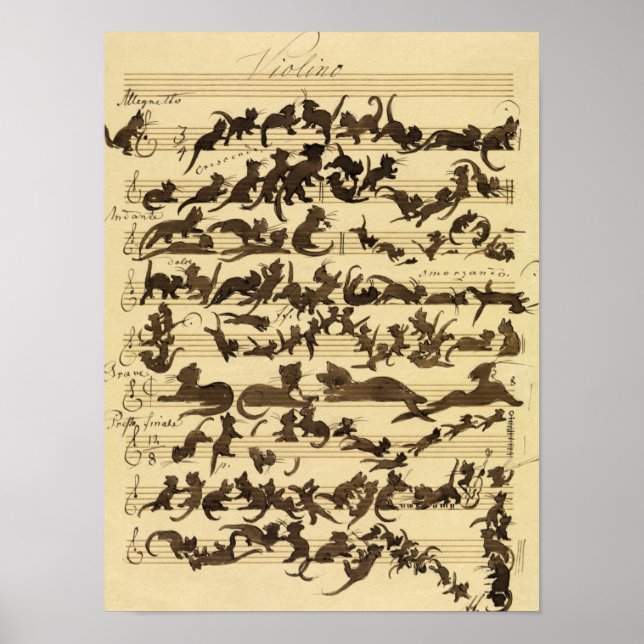 Violino
Allegretto
3
4
crescendo
Andante
dolce
smorzando.
ff.
Grave
8
Presto finale
12
8
p.
ff.